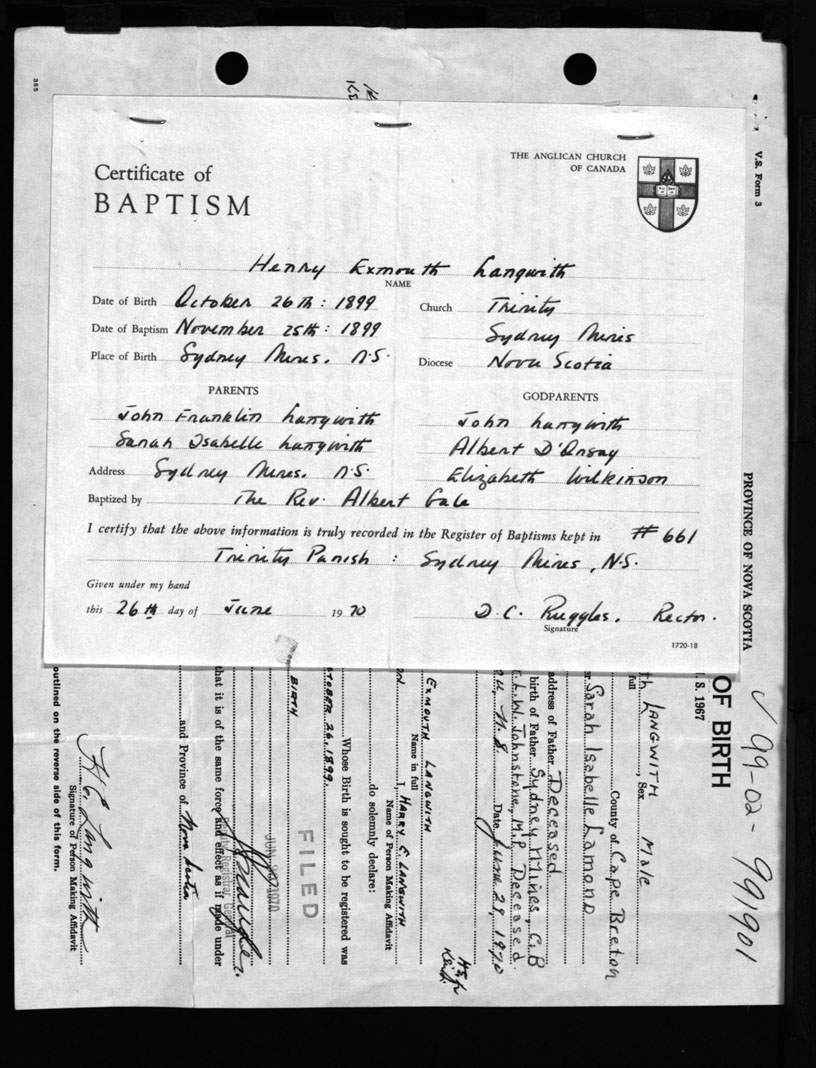 365
V.S. Form 3
Certificate of
BAPTISM
THE ANGLICAN CHURCH
OF CANADA
Henry Exmouth Langwith
NAME
Date of Birth October 26th: 1899
Church Trinity
Date of Baptism November 25th: 1899
Sydney Mines
Place of Birth Sydney Mines. N.S.
Diocese Nova Scotia
PARENTS
GODPARENTS
John Franklin Langwith
John Langwith
Sarah Isabelle Langwith
Albert D'Orsay
Address Sydney Mines. N.S.
Elizabeth Wilkinson
Baptized by The Rev. Albert Gale
I certify that the above information is truly recorded in the Register of Baptisms kept in # 661
Trinity Parish : Sydney Mines, N.S.
Given under my hand
this 26th day of June 1970
D. C. Ruggles. Rector.
Signature
1720-18
PROVINCE OF NOVA SCOTIA
OF BIRTH
S. 1967
99-02-991901
th LANGWITH, Sex Male
full
County of Cape Breton
Sarah Isabelle Lamond
address of Father Deceased
birth of Father Sydney Mines, C.B
L.W. Johnstone, M.P. Deceased.
N.S. Date June 29, 1970
EXMOUTH LANGWITH
Name in full
I, HARRY E. LANGWITH
Name of Person Making Affidavit
do solemnly declare:
Whose Birth is sought to be registered was
OCTOBER 26, 1899.
FILED
BIRTH
1970
Registrar General
that it is of the same force and effect as if made under
and Province of Nova Scotia
H. E. Langwith
Signature of Person Making Affidavit
outlined on the reverse side of this form.